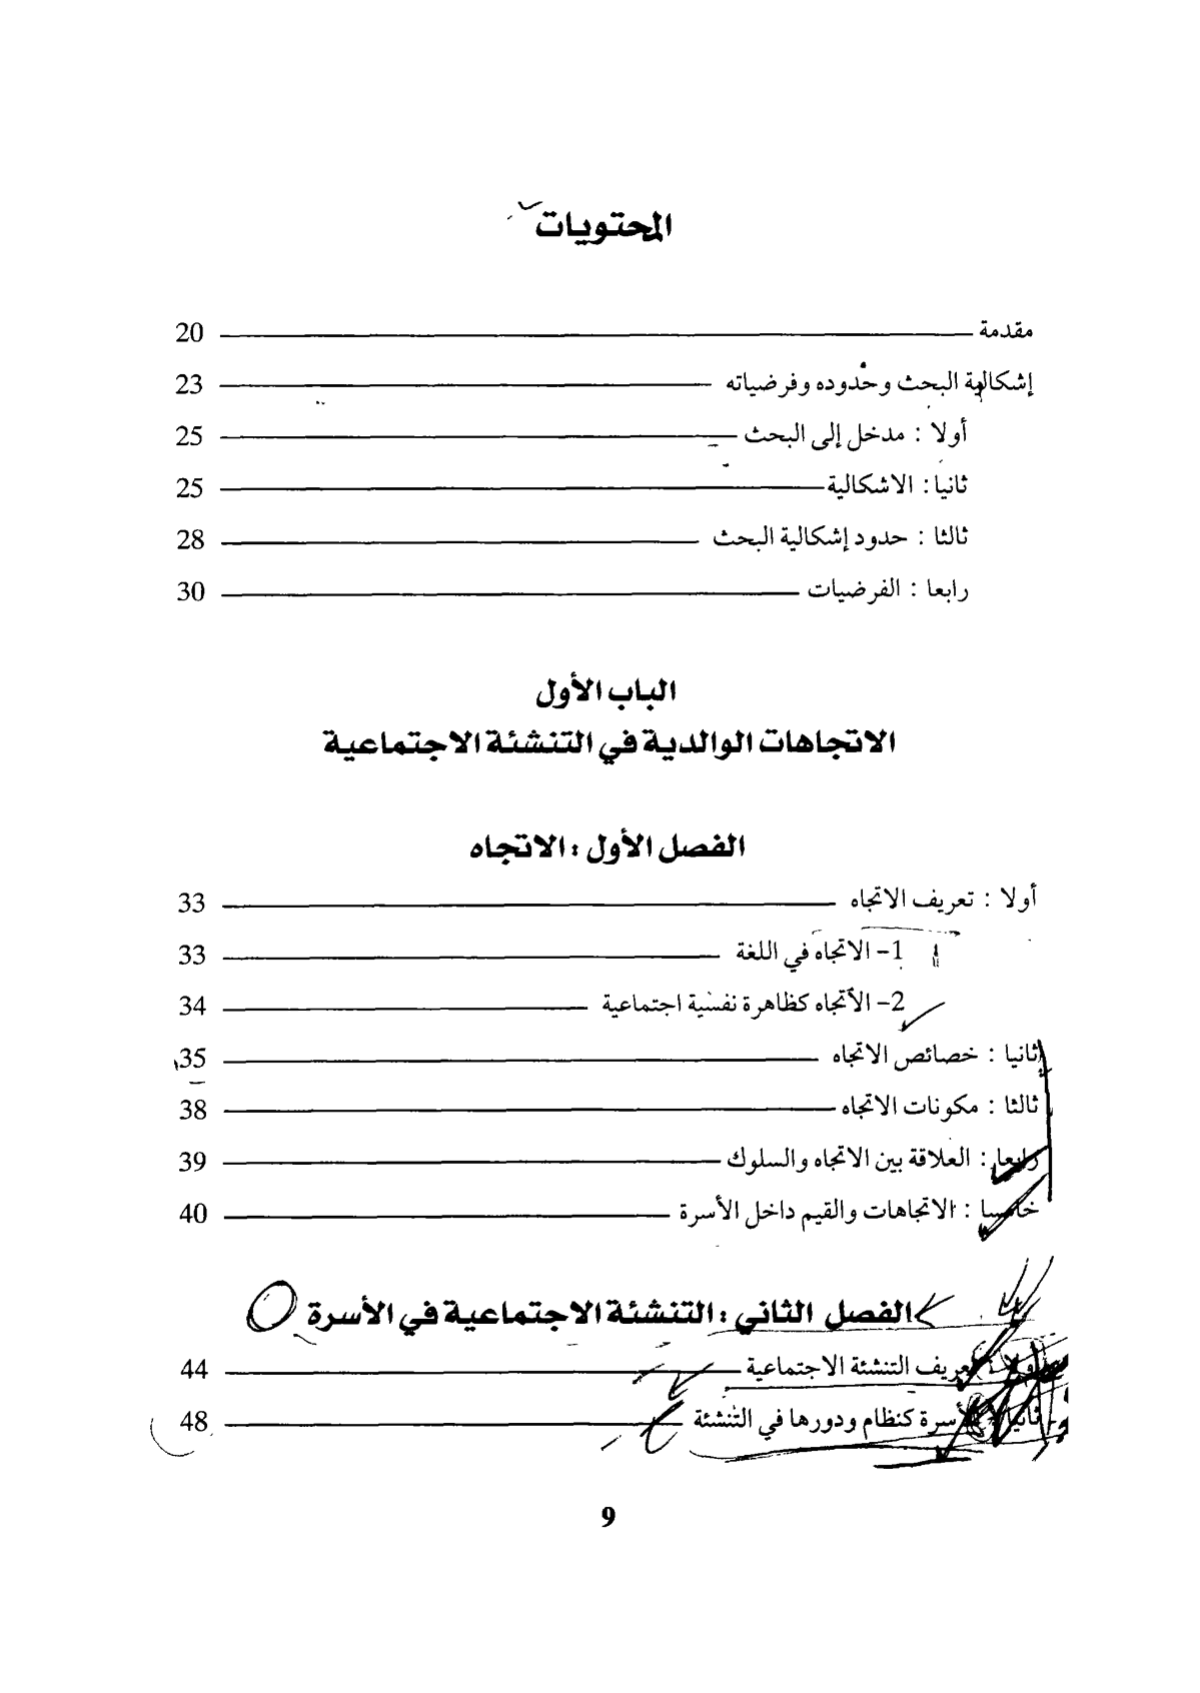 المحتويات
مقدمة 20
إشكالية البحث وحدوده وفرضياته 23
أولا : مدخل إلى البحث 25
ثانيا : الاشكالية 25
ثالثا : حدود إشكالية البحث 28
رابعا : الفرضيات 30
الباب الأول
الاتجاهات الوالدية في التنشئة الاجتماعية
الفصل الأول : الاتجاه
أولا : تعريف الاتجاه 33
1– الاتجاه في اللغة 33
2– الاتجاه كظاهرة نفسية اجتماعية 34
ثانيا : خصائص الاتجاه 35
ثالثا : مكونات الاتجاه 38
رابعا : العلاقة بين الاتجاه والسلوك 39
خامسا : الاتجاهات والقيم داخل الأسرة 40
الفصل الثاني : التنشئة الاجتماعية في الأسرة
أولا : تعريف التنشئة الاجتماعية 44
ثانيا : الأسرة كنظام ودورها في التنشئة 48
9